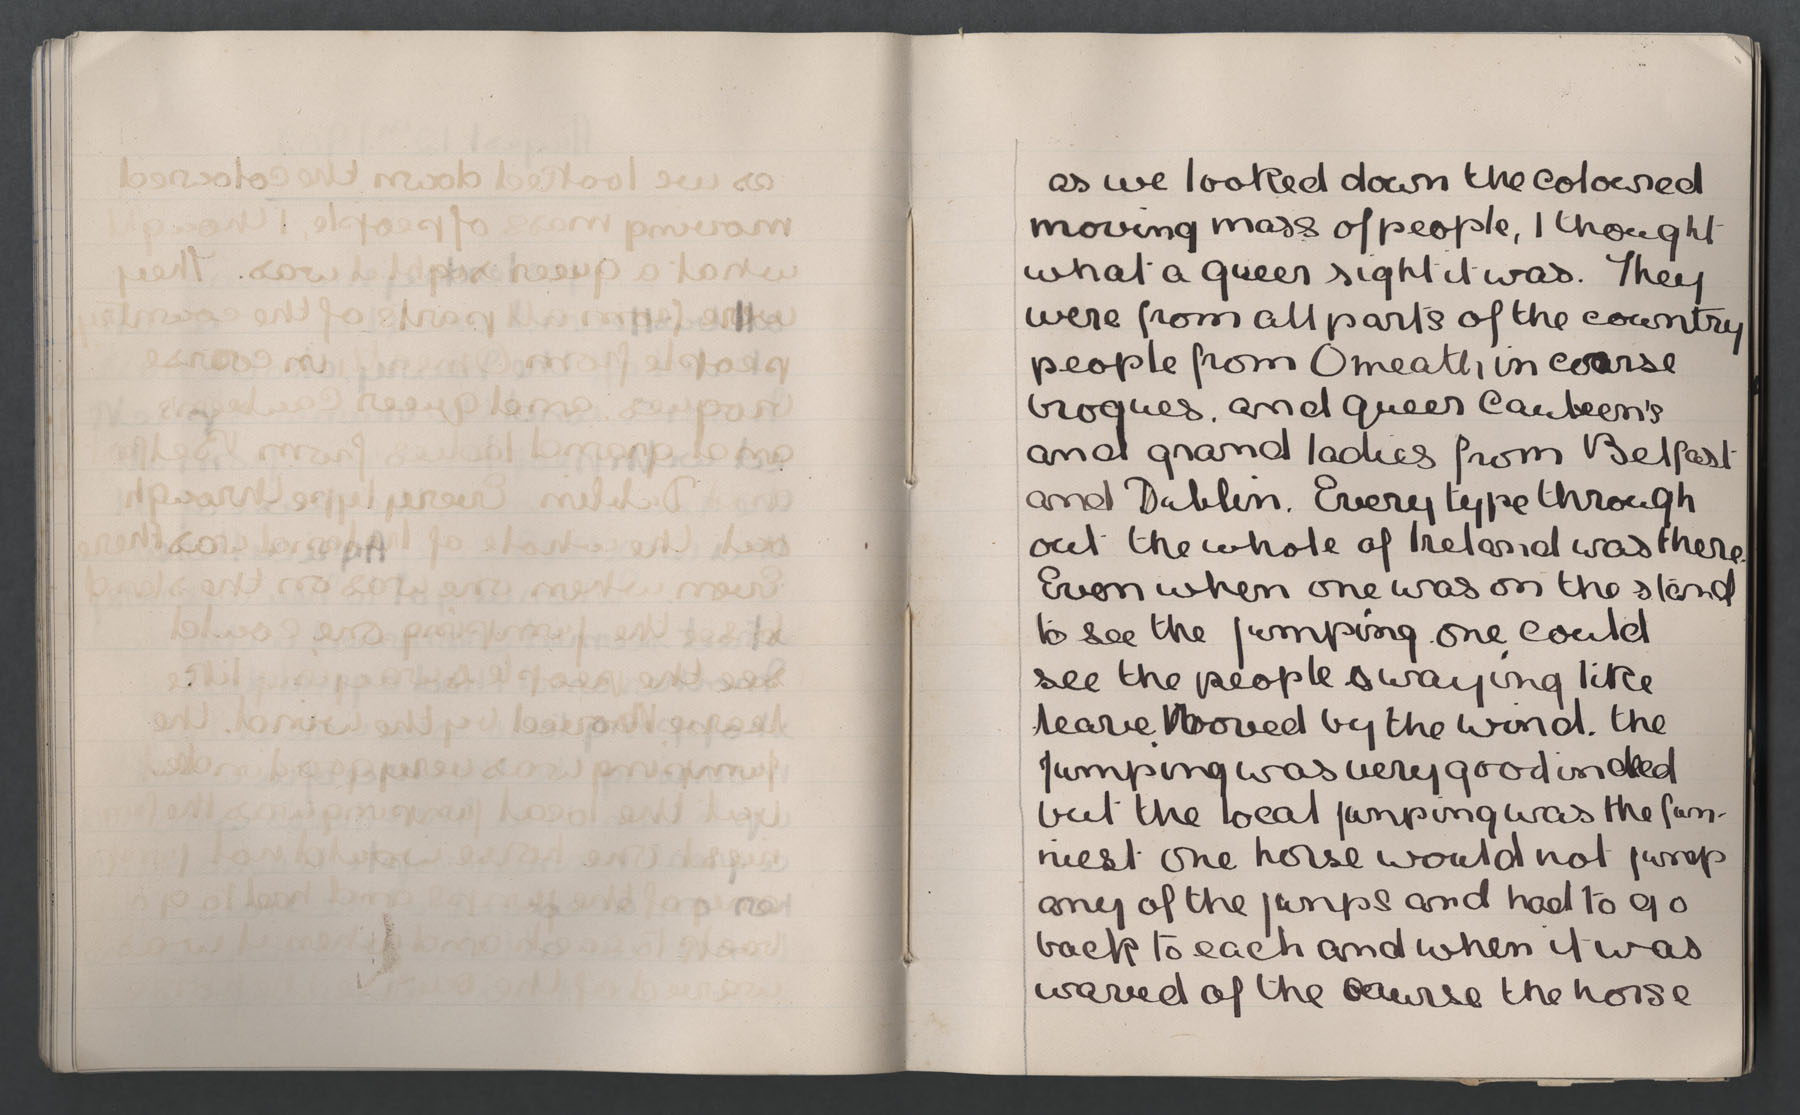 as we looked down the coloured
moving mass of people, I thought
what a queer sight it was. They
were from all parts of the country
people from Omeath, in coarse
brogues. and queer Caubeen's
and grand ladies from Belfast
and Dublin. Every type through
out the whole of Ireland was there.
Even when one was on the stand
to see the jumping one, could
see the people swaying like
leave, Mooved by the wind. the
jumping was very good indeed
but the local jumping was the fun-
niest one horse would not jump
any of the jumps and had to go
back to each and when it was
waved of the course the horse